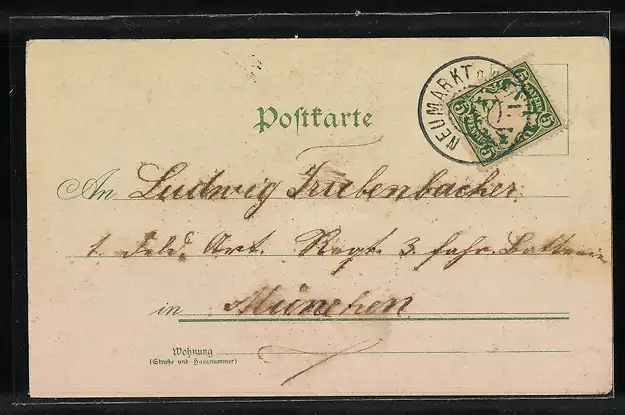 NEUMARKT
5 BAYERN 5
Postkarte
An Ludwig Triebenbacher
1. Feld. Art. Regt. 3. fahr. Batterie
in München
Wohnung
(Straße und Hausnummer)